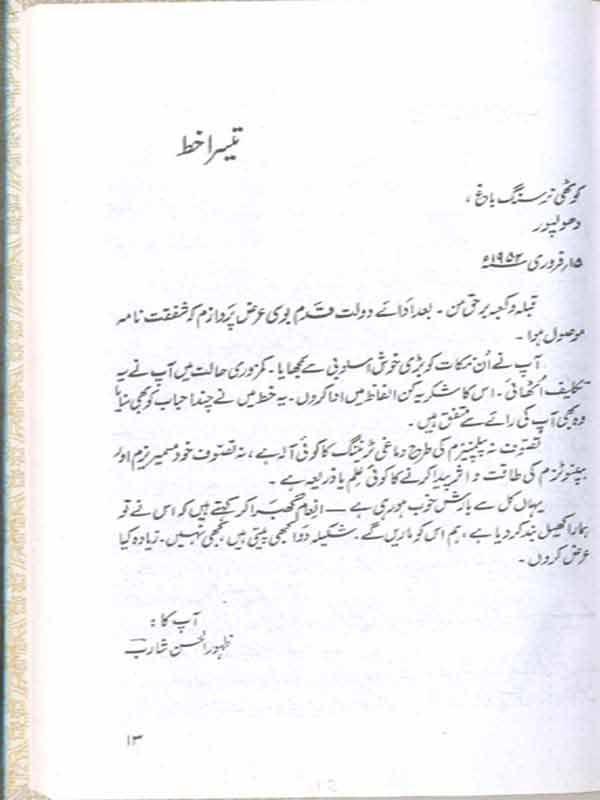 تیسرا خط
کوٹھی نرسنگ باغ ،
دھولپور
۱۵ر فروری ۱۹۵۲ء
قبلہ و کعبہ برحق من ۔ بعد ادائے دولت قدم بوسی عرض پردازم کہ شفقت نامہ
موصول ہوا ۔
آپ نے اُن نکات کو بڑی خوش اسلوبی سے سمجھایا ۔ کمزوری حالت میں آپ نے یہ
تکلیف اُٹھائی ۔ اس کا شکریہ کن الفاظ میں ادا کروں ۔ یہ خط میں نے چند احباب کو بھی سنایا
وہ بھی آپ کی رائے سے متفق ہیں ۔
تصوّف نہ پیلمینزم کی طرح دماغی ٹریننگ کا کوئی آلہ ہے ، نہ تصوّف خود مسمیریزم اور
ہپنوٹزم کی طاقت و اثر پیدا کرنے کا کوئی علم یا ذریعہ ہے ۔
یہاں کل سے بارش خوب ہو رہی ہے — انعام گھبرا کر کہتے ہیں کہ اس نے تو
ہمارا کھیل بند کر دیا ہے ، ہم اس کو ماریں گے ۔ شکیلہ دوا کبھی پیتی ہیں ، کبھی نہیں ۔ زیادہ کیا
عرض کروں ۔
آپ کا :
ظہور الحسن شارب
۱۳